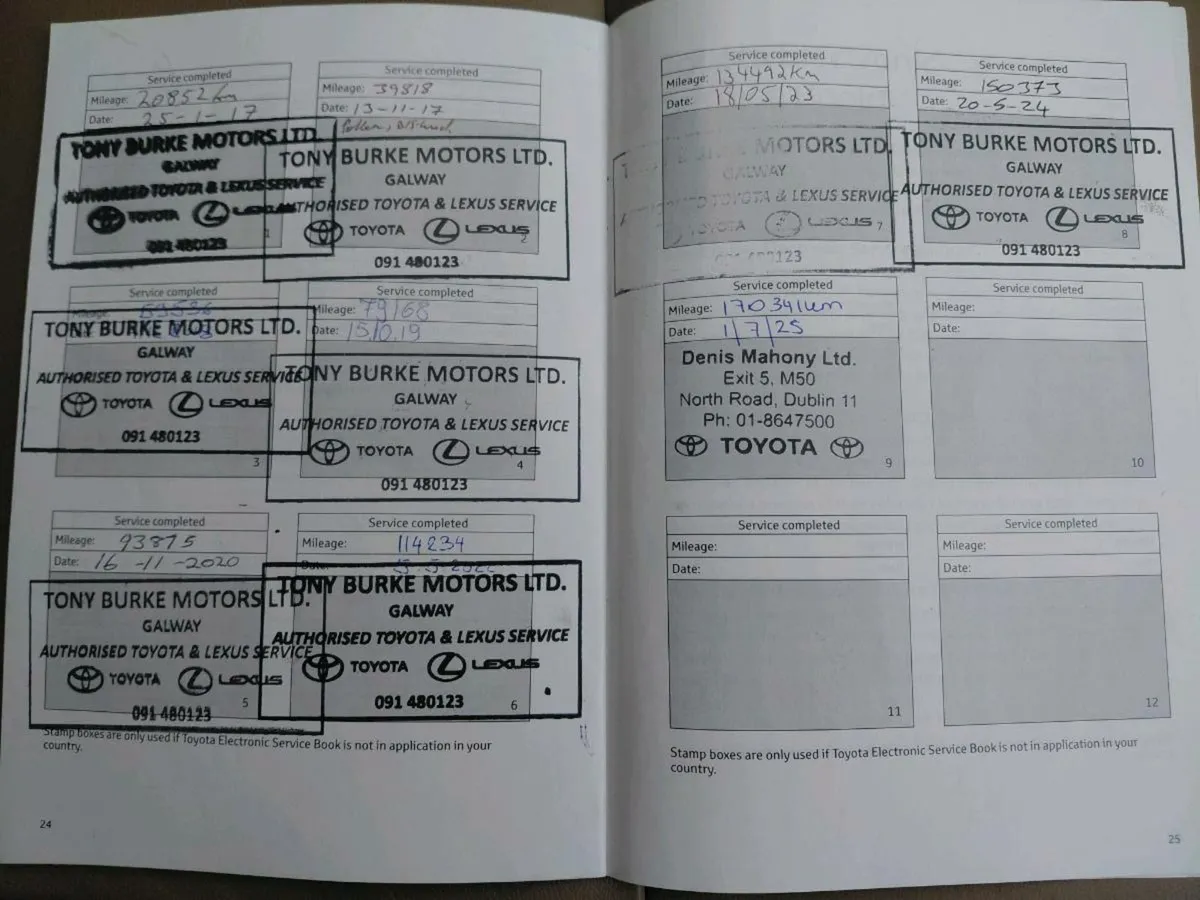 Service completed
Mileage: 20852km
Date: 25-1-17
TONY BURKE MOTORS LTD.
GALWAY
AUTHORISED TOYOTA & LEXUS SERVICE
TOYOTA LEXUS
091 480123
1
Service completed
Mileage: 39818
Date: 13-11-17
Pollen,
TONY BURKE MOTORS LTD.
GALWAY
AUTHORISED TOYOTA & LEXUS SERVICE
TOYOTA LEXUS
2
091 480123
Service completed
Mileage: 59596
TONY BURKE MOTORS LTD.
GALWAY
AUTHORISED TOYOTA & LEXUS SERVICE
TOYOTA LEXUS
091 480123
3
Service completed
Mileage: 79168
Date: 15.10.19
TONY BURKE MOTORS LTD.
GALWAY
AUTHORISED TOYOTA & LEXUS SERVICE
TOYOTA LEXUS
4
091 480123
Service completed
Mileage: 93875
Date: 16-11-2020
TONY BURKE MOTORS LTD.
GALWAY
AUTHORISED TOYOTA & LEXUS SERVICE
TOYOTA LEXUS
5
091 480123
Service completed
Mileage: 114234
Date:
TONY BURKE MOTORS LTD.
GALWAY
AUTHORISED TOYOTA & LEXUS SERVICE
TOYOTA LEXUS
091 480123
6
Stamp boxes are only used if Toyota Electronic Service Book is not in application in your
country.
24
Service completed
Mileage: 134492km
Date: 18/05/23
MOTORS LTD.
GALWAY
TOYOTA & LEXUS SERVICE
TOYOTA LEXUS 7
123
Service completed
Mileage: 150373
Date: 20-5-24
TONY BURKE MOTORS LTD.
GALWAY
AUTHORISED TOYOTA & LEXUS SERVICE
TOYOTA LEXUS
8
091 480123
Service completed
Mileage: 170341km
Date: 1/7/25
Denis Mahony Ltd.
Exit 5, M50
North Road, Dublin 11
Ph: 01-8647500
TOYOTA
9
Service completed
Mileage:
Date:
10
Service completed
Mileage:
Date:
11
Service completed
Mileage:
Date:
12
Stamp boxes are only used if Toyota Electronic Service Book is not in application in your
country.
25